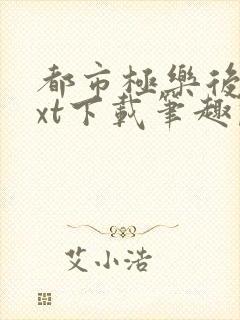 都市極樂後
xt下載筆趣
艾小浩